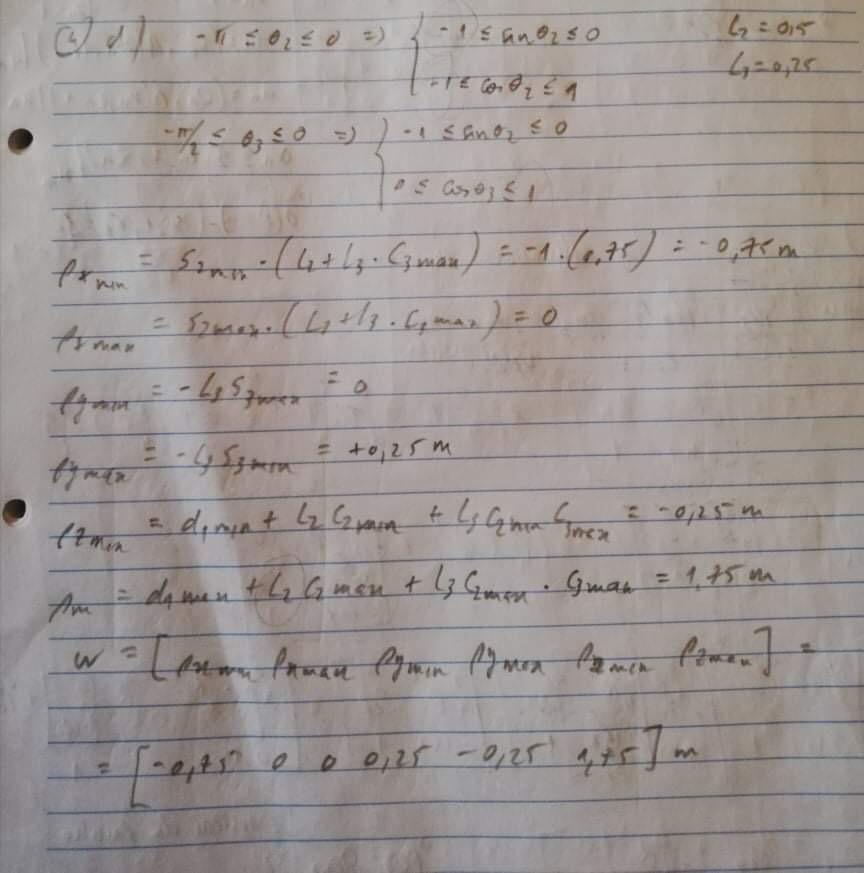 4) d) -π ≤ θ2 ≤ 0 => { -1 ≤ sinθ2 ≤ 0 L2 = 0,5
-1 ≤ cosθ2 ≤ 1 L3 = 0,25
-π/2 ≤ θ3 ≤ 0 => { -1 ≤ sinθ2 ≤ 0
0 ≤ cosθ3 ≤ 1
Pxmin = S2min · (L2 + L3 · C3max) = -1 · (0,75) = -0,75 m
Pxmax = S2max · (L2 + L3 · C3max) = 0
Pymin = -L3 S3max = 0
Pymax = -L3 S3min = +0,25 m
Pzmin = d1min + L2 C2min + L3 C2min C3max = -0,25 m
Pm = d1max + L2 C2max + L3 C2max · C3max = 1,75 m
W = [Pxmin Pxmax Pymin Pymax Pzmin Pzmax] =
= [-0,75 0 0 0,25 -0,25 1,75] m